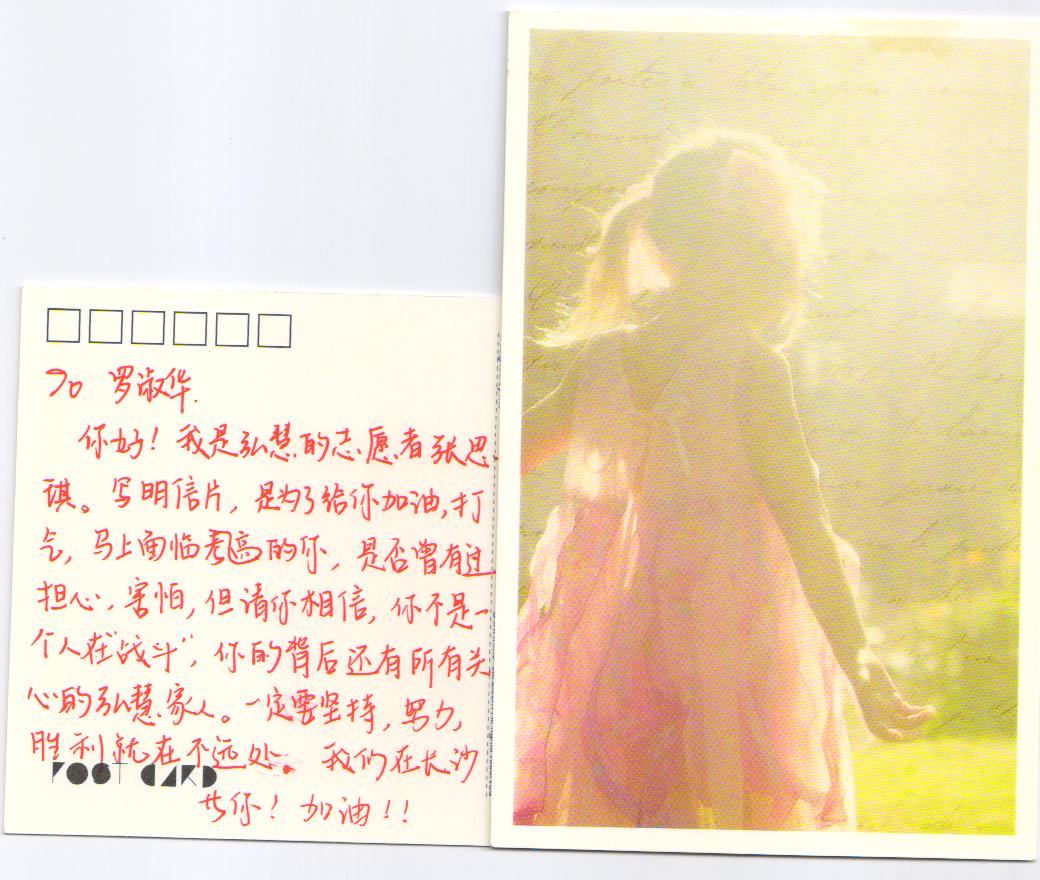 To 罗淑华.
你好！我是弘慧的志愿者张思
琪。写明信片，是为了给你加油,打
气，马上面临高的你，是否曾有过
担心，害怕，但请你相信，你不是一
个人在“战斗”，你的背后还有所有关
心的弘慧家人。一定要坚持，努力，
胜利就在不远处。我们在长沙
你！加油！！
POST CARD